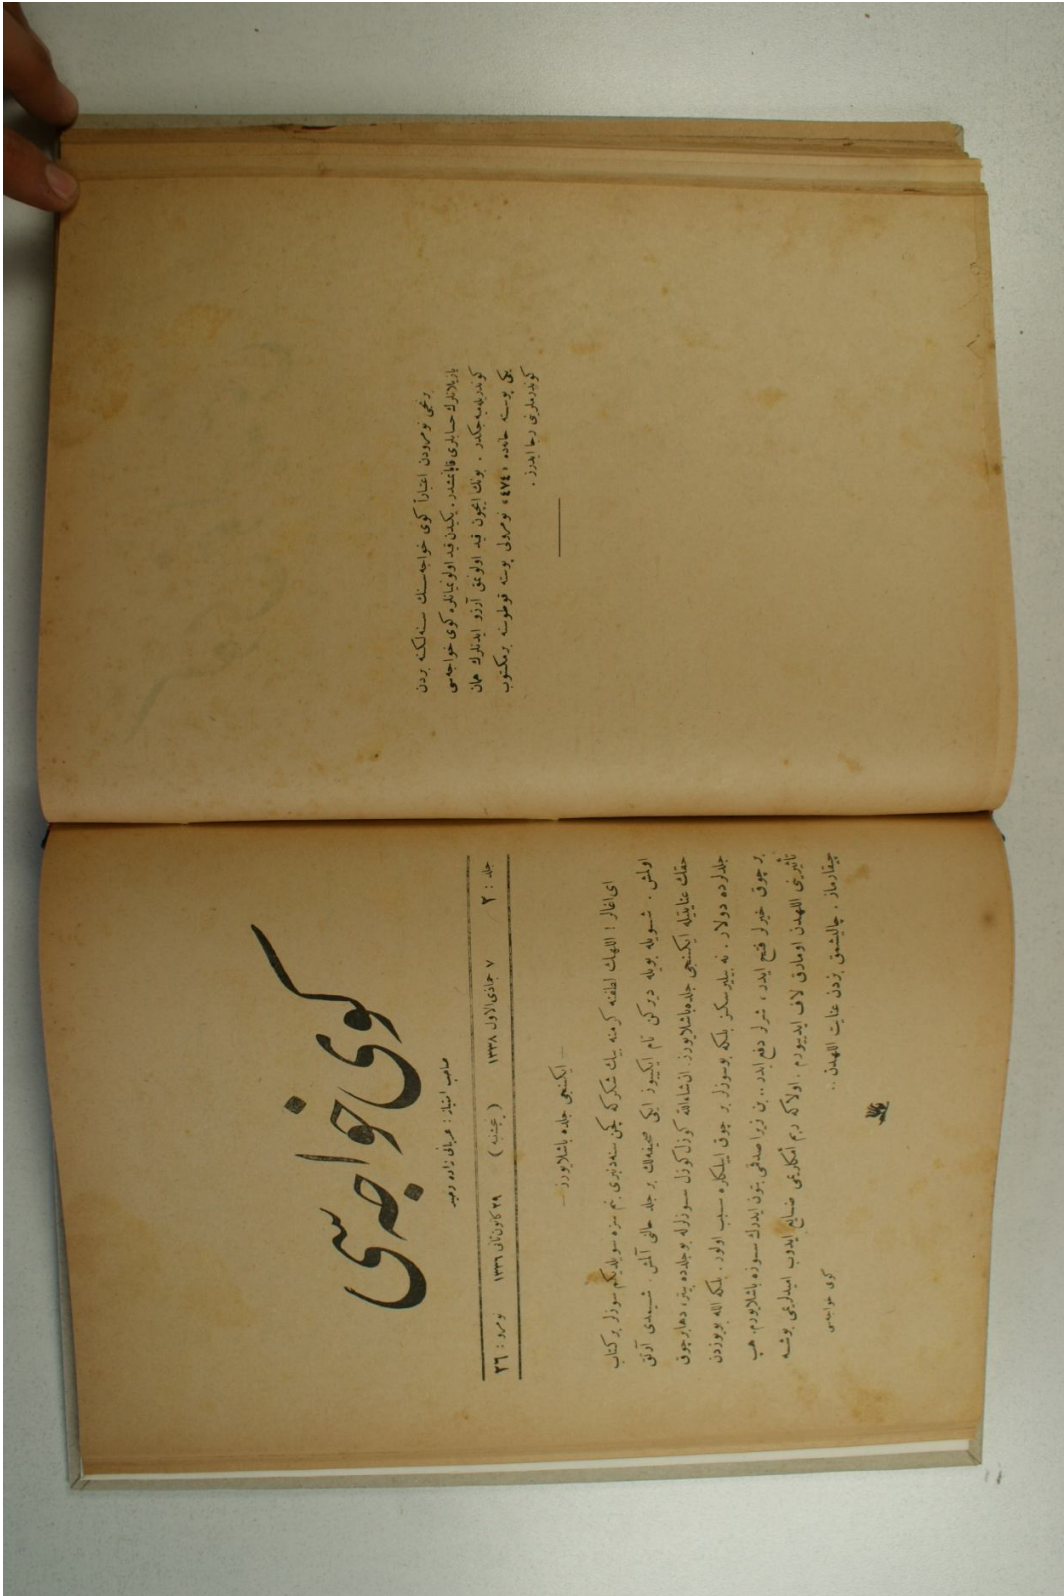 كوى خواجه‌سى
صاحب امتياز : عربانى زاده وحيد
جلد : ٢ ٧ جماذى‌الاول ١٣٣٨ ( پنجشنبه ) ٢٩ كانون ثانى ١٣٣٦ نومرو : ٢٦
ايكنجى جلده باشلايورز
اى‌اغالر ! اللهك لطفنه كرمنه بيك شكركه كچن سنه‌دنبرى بنم سزه سويلديكم سوزلر بر كتاب
اولمش . شويله بويله ديركن تام ايكييوز ايكى صحيفه‌لك بر جلد حالى آلمش . شيمدى آرتق
حقك عنايتيله ايكنجى جلده باشلايورز. ان‌شاءالله كوزل كوزل سوزلرله بوجلدده بيتر، دهابرچوق
جلدلرده دولار . نه بيليرسكز بلكه بوسوزلر بر چوق ايلكلره سبب اولور . بلكه الله بويوزدن
بر چوق خيرلر فتح ايدر ، شرلر دفع ايدر .. بن زيرا صدقمى بتون ايدرك سوزه باشلايورم. هپ
تأثيرينى اللهدن اومارق لاف ايدييورم . اولا كه ربم أمكلريمى ضايع ايدوب اميدلريمى بوشه
چيقارماز . چاليشمق بزدن عنايت اللهدن ..
كوى خواجه‌سى
نومرودن اعتباراً كوى خواجه‌سنك سنه‌لكنه بردن
يازيلانلرك حسابلرى قاپانمشدر. يكيدن قيد اولونميانلره كوى خواجه‌سى
كوندريلميه‌جكدر . بونك ايچون قيد اولونمق آرزو ايدنلرك همان
يكى پوسته خانه‌ده «٤٧٤» نومرولى پوسته قوطوسنه برمكتوب
كوندرملرينى رجا ايدرز .